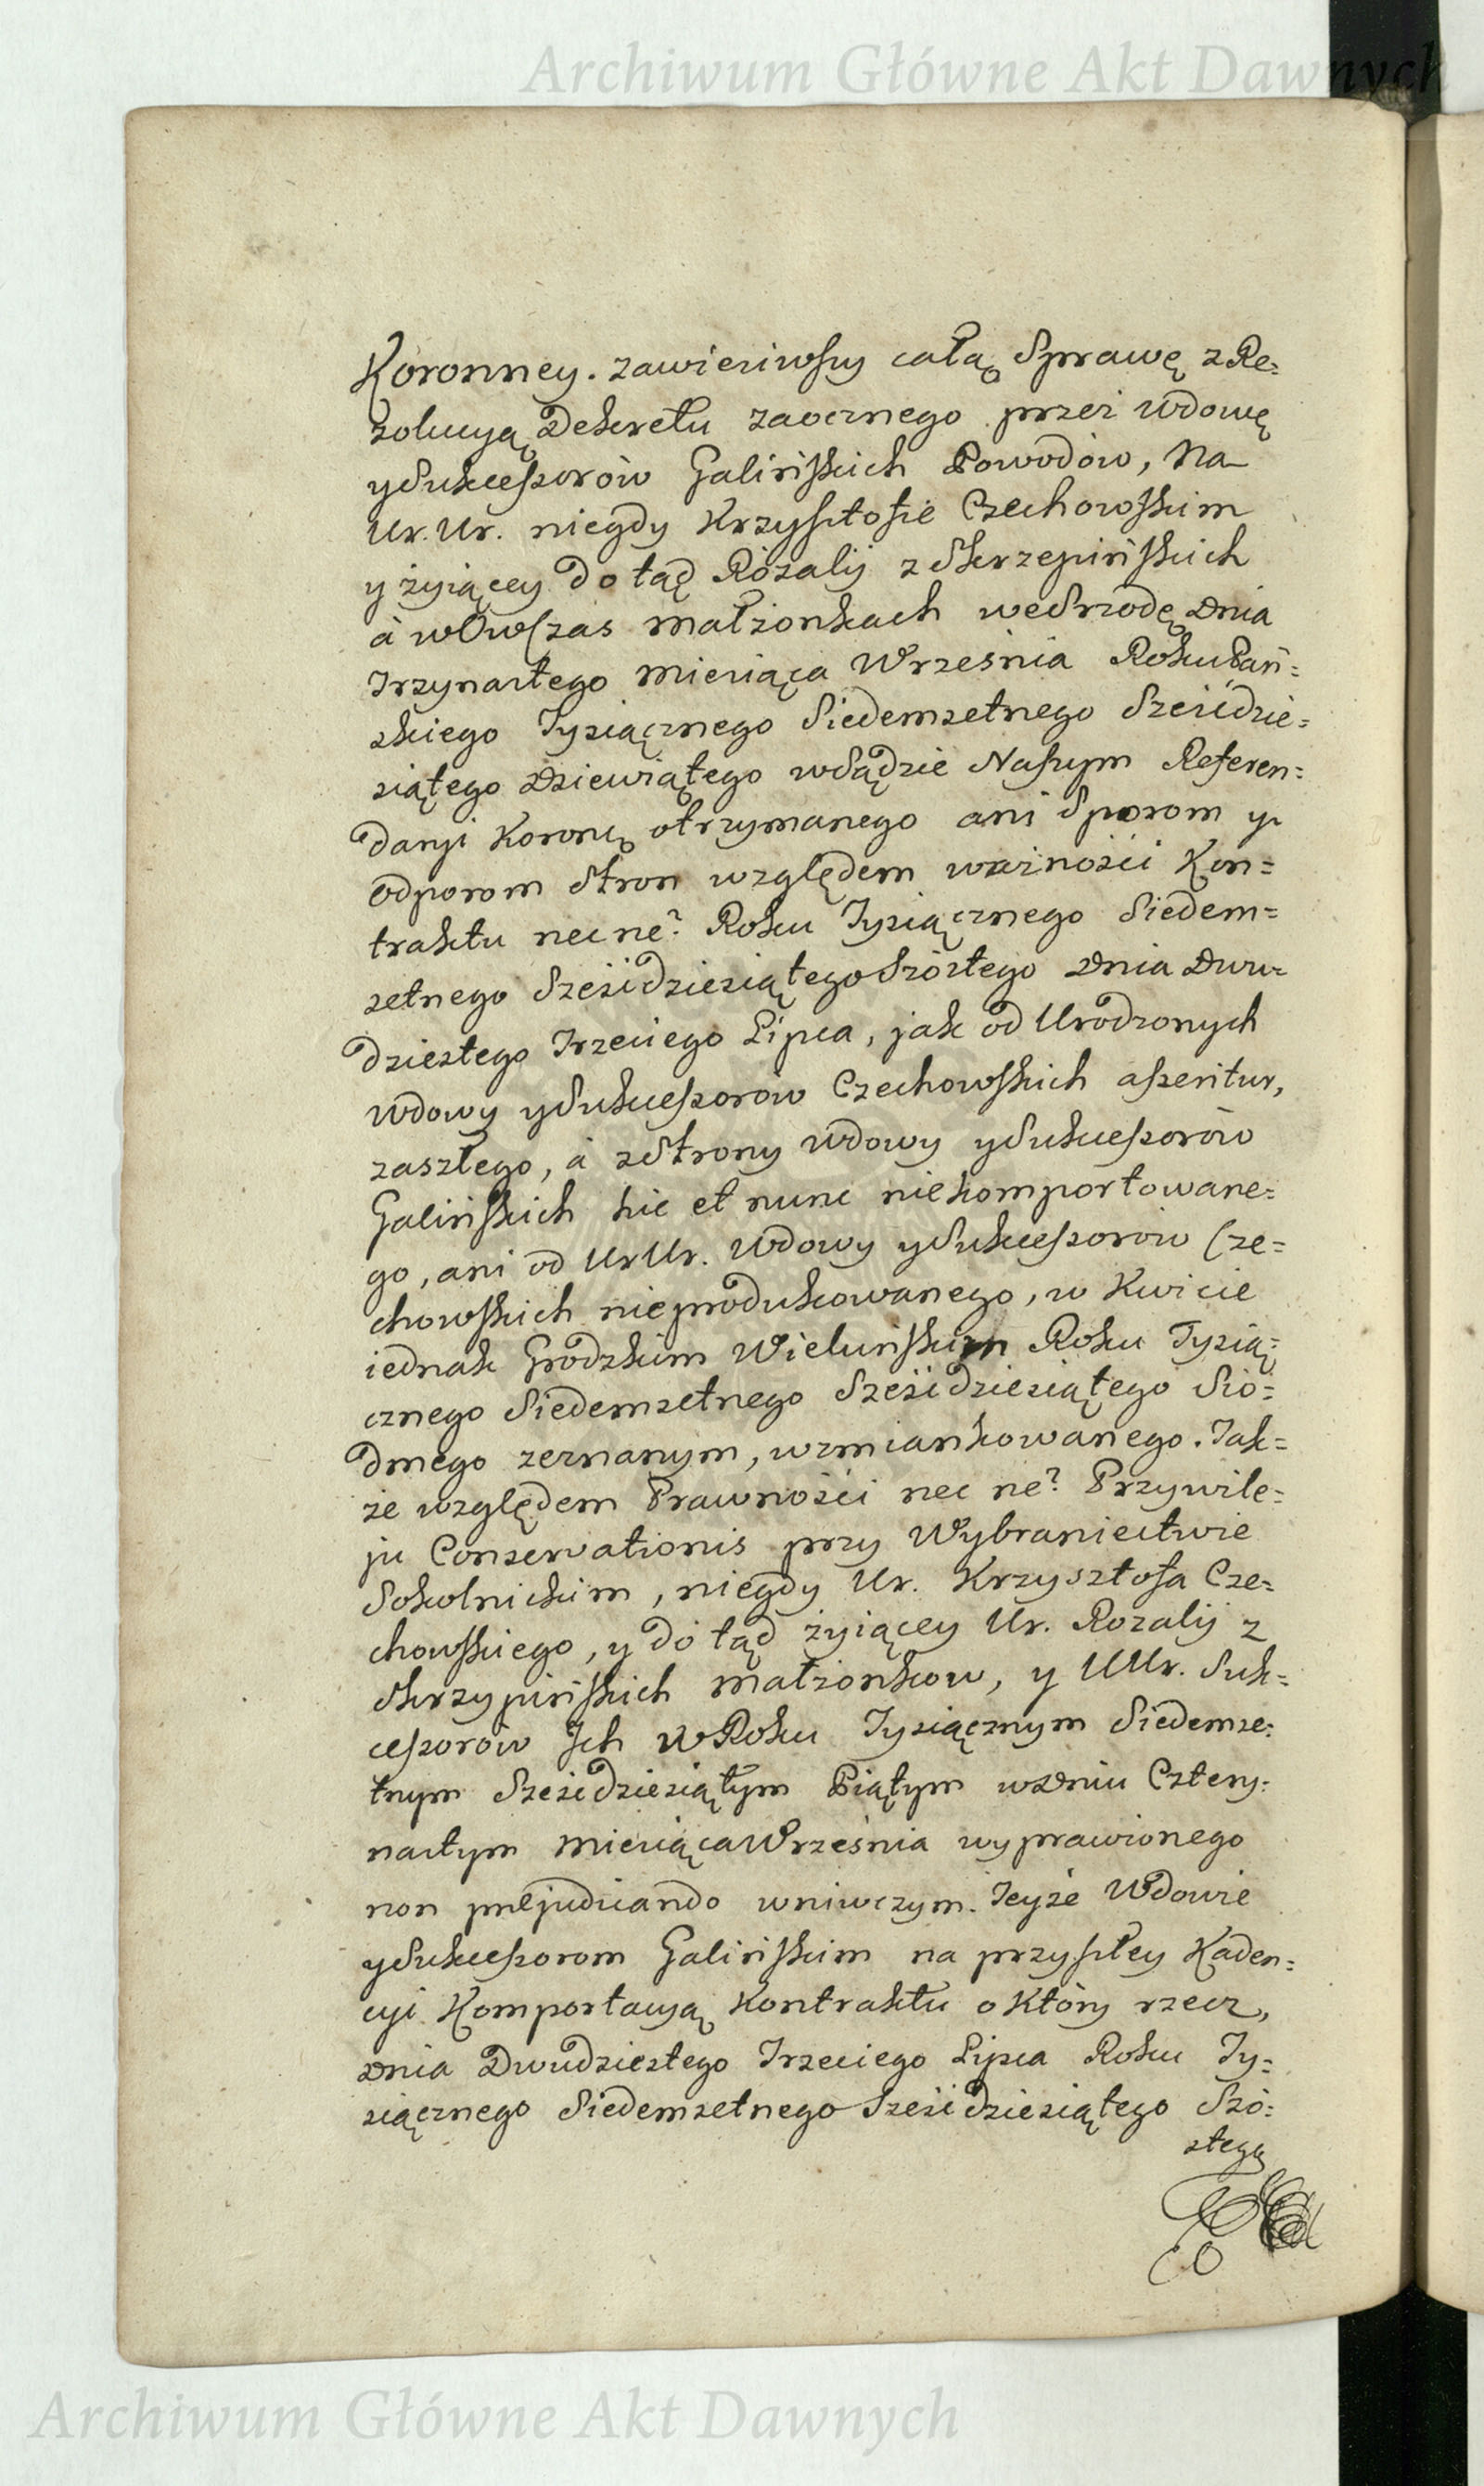 Archiwum Główne Akt Dawnych
Koronney. zawiesiwszy całą Sprawę z Re=
zolucyą Dekretu zaocznego przez Wdowę
y Sukcessorów Galińskich Powodów, Na
Ur. Ur. niegdy Krzysztofie Czechowskim
y żyiącey do tąd Rózalij z Skrzepińskich
à wOwszas małżonkach we Srzodę Dnia
Trzynastego Miesiąca Września Roku Pań=
skiego Tysiącznego Siedemsetnego Sześćdzie=
siątego Dziewiątego w Sądzie Naszym Referen=
daryi Koronę otrzymanego ani Sporom y
odporom Stron względem ważności Kon=
traktu nec ne? Roku Tysiącznego Siedem=
setnego Sześćdziesiątego Szóstego Dnia Dwu=
dziestego Trzeciego Lipca, jak od Urodzonych
Wdowy y Sukcessorów Czechowskich asseritur,
zaszłego, à z Strony Wdowy y Sukcessorów
Galińskich hic et nunc niekomportowane=
go, ani od Ur Ur. Wdowy y Sukcessorów Cze=
chowskich nieprodukowanego, w Kwicie
iednak Grodzkim Wieluńskim Roku Tysią=
cznego Siedemsetnego Sześćdziesiątego Sió=
dmego zeznanym, wzmiankowanego. Tak=
że względem Prawności nec ne? Przywile=
ju Conservationis przy Wybraniectwie
Sokolnickim, niegdy Ur. Krzysztofa Cze=
chowskiego, y do tąd żyiącey Ur. Rozalij z
Skrzypińskich małżonkow, y UUr. Suk=
cessorów Ich w Roku Tysiącznym Siedemse=
tnym Sześćdziesiątym Piątym w Dniu Cztery=
nastym Miesiąca Września wyprawionego
non præjudicando wniwczym. Teyże Wdowie
y Sukcessorom Galińskim na przyszłey Kaden=
cyi Komportacyą Kontraktu o Który rzecz,
Dnia Dwudziestego Trzeciego Lipca Roku Ty=
siącznego Siedemsetnego Sześćdziesiątego Szó=
stego
Archiwum Główne Akt Dawnych